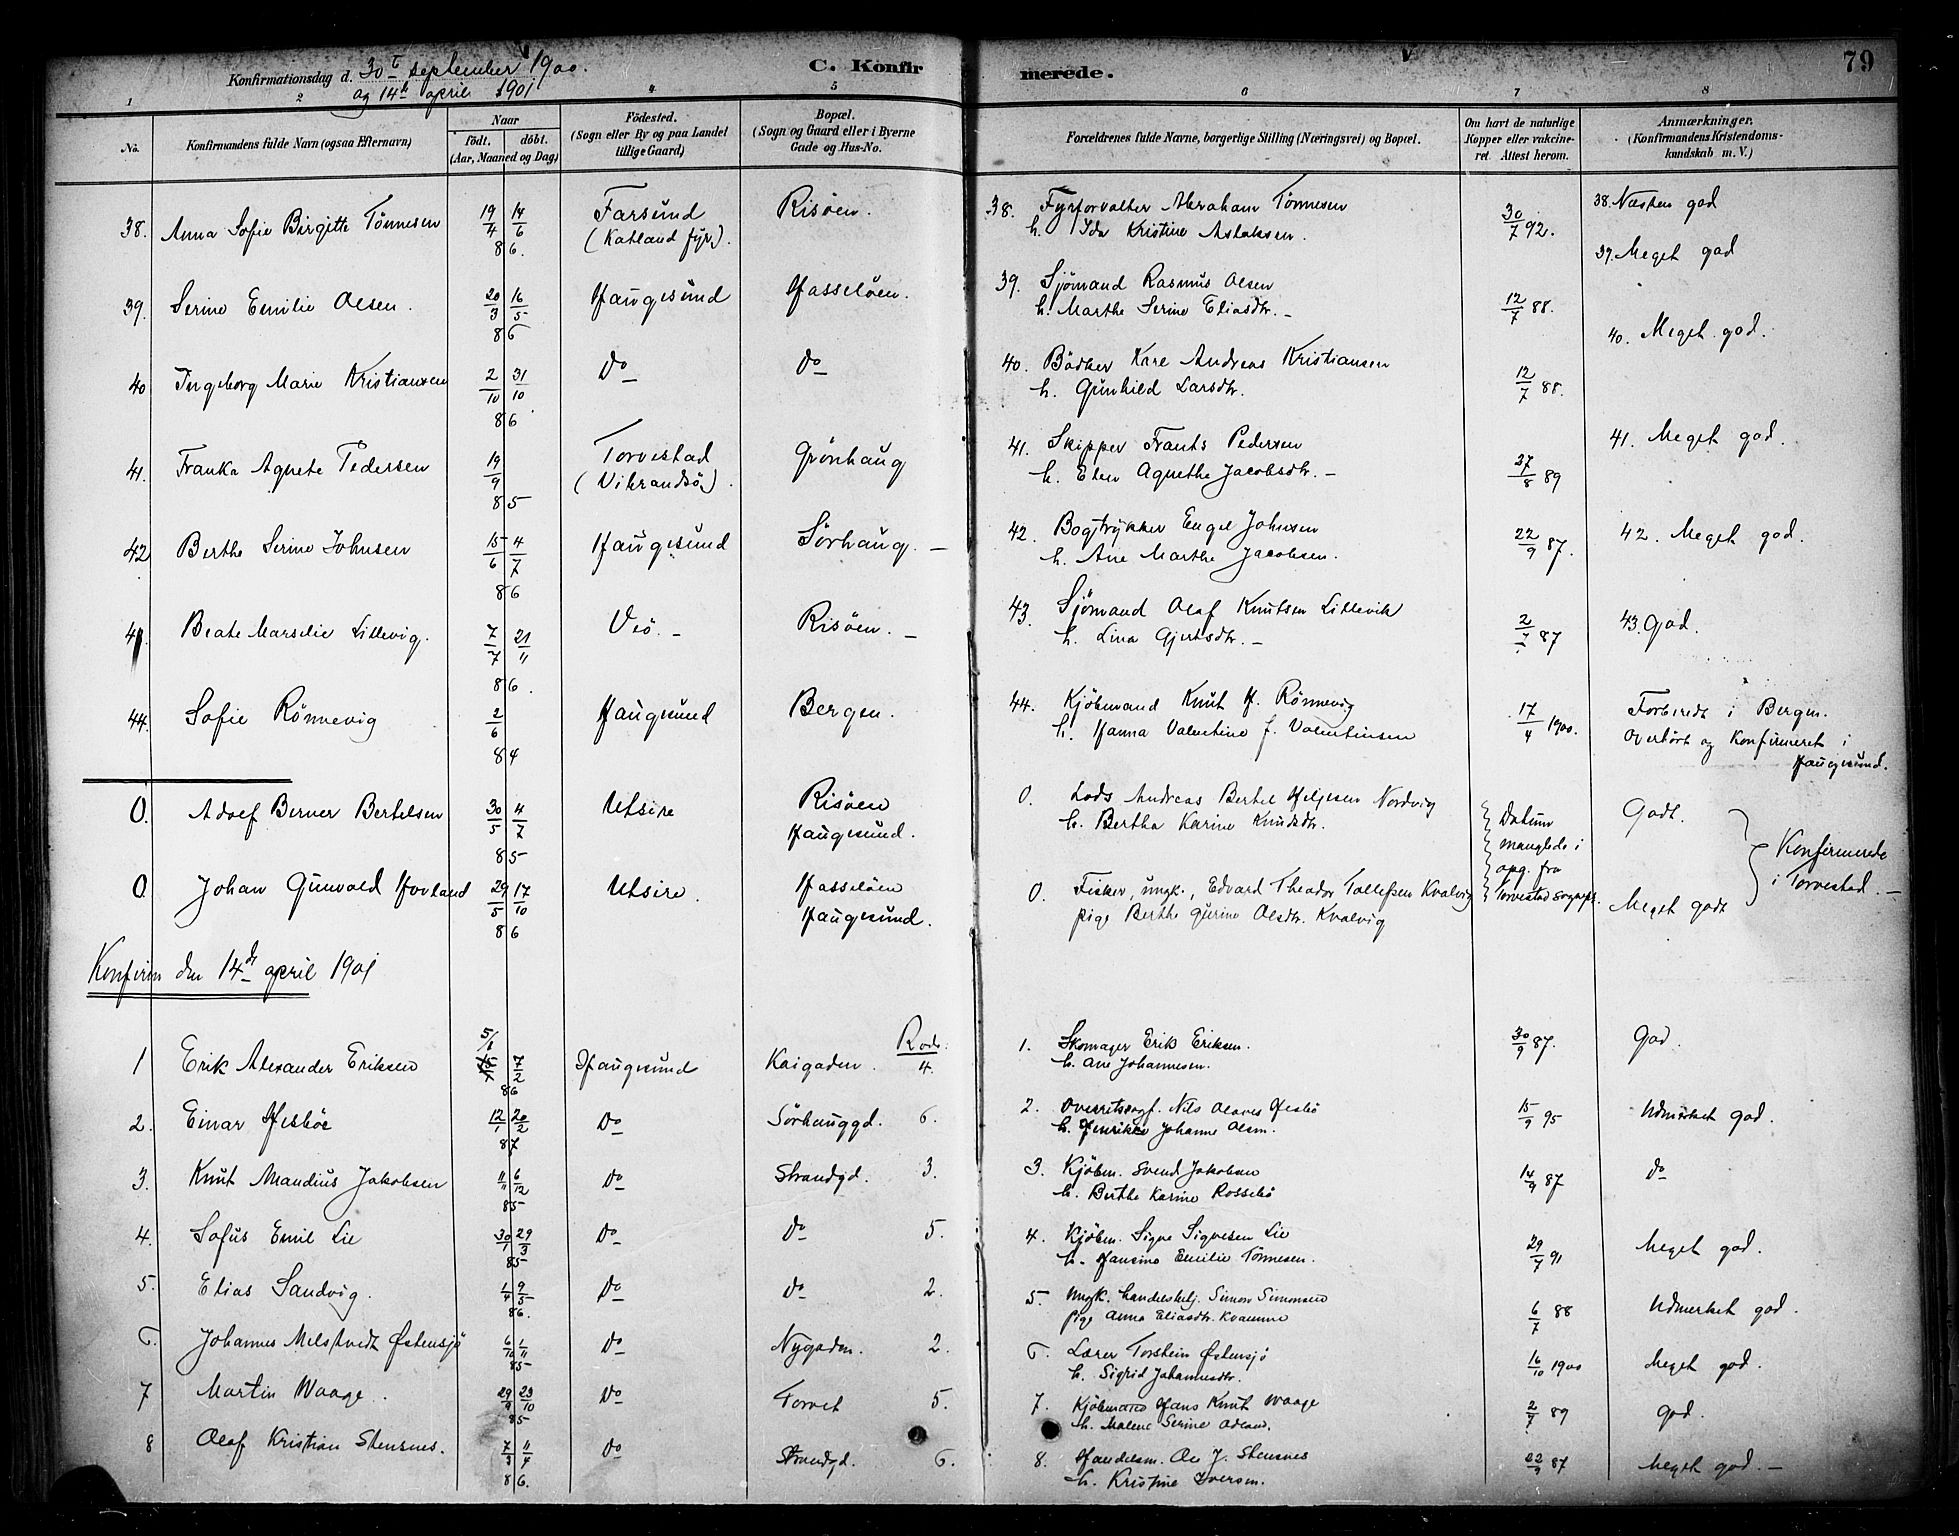 Konfirmationsdag d. 30te september 1900.
og 14de april 1901
C. Konfirmerede.
79
1 2 3 4 5 6 7 8
No.
Konfirmandens fulde Navn (ogsaa Efternavn)
Naar
födt. döbt.
(Aar, Maaned og Dag)
Födested.
(Sogn eller By og paa Landet
tillige Gaard)
Bopæl.
(Sogn og Gaard eller i Byerne
Gade og Hus-No.
Forældrenes fulde Navne, borgerlige Stilling (Næringsvei) og Bopæl.
Om havt de naturlige
Kopper eller vakcine-
ret Attest herom.
Anmærkninger.
(Konfirmandens Kristendoms-
kundskab m. V.)
38. Anna Sofie Birgitte Tönnesen 19/4 14/6 86. Farsund (Katland fyr). Risöen. 38. Fyrforvalter Abraham Tönnesen 30/7 92. 38. Næsten god
h. Ida Kristine Aslaksen.
39. Serine Emilie Olsen. 20/3 16/5 86 Haugesund Hasselöen. 39. Sjömand Rasmus Olsen 12/7 88. 39. Meget god
h. Marthe Serine Eliasdtr. -
40 Ingeborg Marie Kristiansen 2/10 31/10 86 Do Do 40. Bödker Karl Andreas Kristiansen 12/7 88. 40. Meget god.
h. Gunhild Larsdtr.
41. Franka Agnete Pedersen 19/9 85 Torvestad (Vibrandsö). Grönhaug 41. Skipper Frants Pedersen 27/8 89 41. Meget god.
h. Elen Agnethe Jacobsdtr. -
42 Berthe Serine Johnsen 15/6 4/7 86 Haugesund Sörhaug. - 42. Bogtrykker Engel Johnsen 22/9 87. 42. Meget god.
h. Ane Marthe Jacobsen.
Beate Marselie Lillevig. 7/7 21/11 86. Veö. - Risöen. - 43. Sjömand Olaf Knutsen Lillevik 2/7 87 43. God.
h. Lina Gjertsdtr. -
44. Sofie Rönnevig 2/6 84 Haugesund Bergen. 44. Kjöbmand Knut H. Rönnevig 17/4 1900. Forberedt i Bergen.
h. Hanna Valentine f. Valentinsen Overhört og Konfirmeret i
Haugesund.
0. Adolf Berner Bertelsen 30/5 4/7 85 Utsire Risöen Haugesund. 0. Lods Andreas Bertel Helgesen Nordvig Datum Godt.
h. Bertha Karine Knudsdtr. manglede i Konfirmerede
opg. fra i Torvestad. -
0 Johan Gunvald Hovland 29/5 17/10 86 Utsire. Hasselöen Haugesund. 0. Fisker, ungk., Edvard Theodor Tollefsen Kvalvig Torvestad sognepr. Meget godt
pige Berthe Gurine Olsdtr. Kvalvig
Konfirm den 14de april 1901
Rode.
1 Erik Alexander Eriksen 5/1 7/2 86 Haugesund Kaigaden. 4. 1. Skomager Erik Eriksen. 30/9 87. God.
h. Ane Johannesen.
2. Einar Hesböe 12/1 20/2 87 Do Sörhauggd. 6. 2. Overretssagf. Nils Olaves Hesbö 15/9 95 Udmerket god.
h. Henrikke Johanne Olsen.
3. Knut Mandius Jakobsen 11/11 6/12 85 Do Strandgd. 3. 3. Kjöbm. Svend Jakobsen 14/9 87 Do
h. Berthe Karine Rossebö
4. Sofus Emil Lie 30/1 29/3 85 Do Do 5. 4. Kjöbm. Sigve Sigvesen Lie 29/7 91 Meget god.
h. Hansine Emilie Tönnesen.
5. Elias Sandvig. 1/4 9/5 86. Do Do 2. 5. Ungk. handelsbetj. Simon Simonsen 6/7 88 Udmerket god.
pige Anna Eliasdtr. Kvamme
6. Johannes Melstvedt Østensjö 6/10 1/11 85 Do Nygaden. 2. 6. Lærer Torstein Østensjö 16/10 1900 Meget god.
h. Sigrid Johannesdtr.
7 Martin Waage. 29/9 23/10 85 Do Torvet 5. 7. Kjöbmand Hans Knut Waage 2/9 89 god.
h. Malene Serine Odland.
8 Olaf Kristian Stensnes. 7/3 11/4 86. Do Strandgd. 6. 8. Handelsm. Ole J. Stensnes 22/9 87 Meget god. -
h. Kristine Iversen.